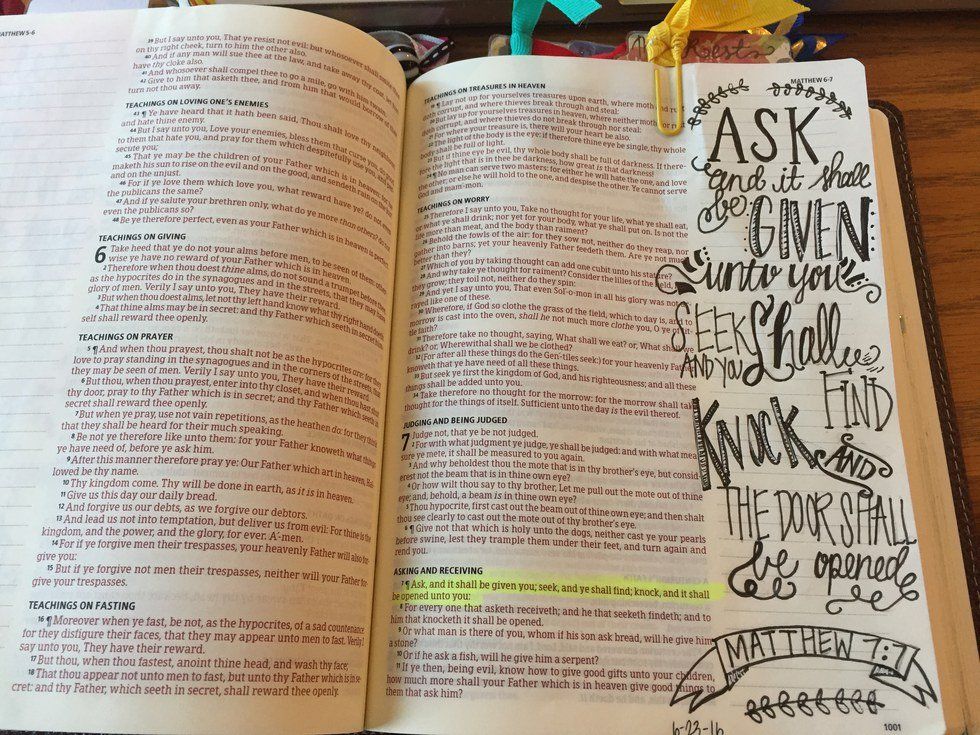 MATTHEW 5-6
39 But I say unto you, That ye resist not evil: but whosoever shall
on thy right cheek, turn to him the other also.
40 And if any man will sue thee at the law, and take away thy coat, let him
have thy cloke also.
41 And whosoever shall compel thee to go a mile, go with him twain.
42 Give to him that asketh thee, and from him that would borrow of
turn not thou away.
TEACHINGS ON LOVING ONE'S ENEMIES
43 ¶ Ye have heard that it hath been said, Thou shalt love thy neighbour,
and hate thine enemy.
44 But I say unto you, Love your enemies, bless them that curse you, do good
to them that hate you, and pray for them which despitefully use you, and
secute you;
45 That ye may be the children of your Father which is in heaven: for he
maketh his sun to rise on the evil and on the good, and sendeth rain on the
and on the unjust.
46 For if ye love them which love you, what reward have ye? do not even
the publicans the same?
47 And if ye salute your brethren only, what do ye more than others? do not
even the publicans so?
48 Be ye therefore perfect, even as your Father which is in heaven is perfect.
TEACHINGS ON GIVING
6 Take heed that ye do not your alms before men, to be seen of them: other-
wise ye have no reward of your Father which is in heaven.
2 Therefore when thou doest thine alms, do not sound a trumpet before thee,
as the hypocrites do in the synagogues and in the streets, that they may have
glory of men. Verily I say unto you, They have their reward.
3 But when thou doest alms, let not thy left hand know what thy right hand doeth:
4 That thine alms may be in secret: and thy Father which seeth in secret him-
self shall reward thee openly.
TEACHINGS ON PRAYER
5 ¶ And when thou prayest, thou shalt not be as the hypocrites are: for they
love to pray standing in the synagogues and in the corners of the streets, that
they may be seen of men. Verily I say unto you, They have their reward.
6 But thou, when thou prayest, enter into thy closet, and when thou hast shut
thy door, pray to thy Father which is in secret; and thy Father which seeth in
secret shall reward thee openly.
7 But when ye pray, use not vain repetitions, as the heathen do: for they think
that they shall be heard for their much speaking.
8 Be not ye therefore like unto them: for your Father knoweth what things
ye have need of, before ye ask him.
9 After this manner therefore pray ye: Our Father which art in heaven, Hal-
lowed be thy name.
10 Thy kingdom come. Thy will be done in earth, as it is in heaven.
11 Give us this day our daily bread.
12 And forgive us our debts, as we forgive our debtors.
13 And lead us not into temptation, but deliver us from evil: For thine is the
kingdom, and the power, and the glory, for ever. A´-men.
14 For if ye forgive men their trespasses, your heavenly Father will also for-
give you:
15 But if ye forgive not men their trespasses, neither will your Father for-
give your trespasses.
TEACHINGS ON FASTING
16 ¶ Moreover when ye fast, be not, as the hypocrites, of a sad countenance:
for they disfigure their faces, that they may appear unto men to fast. Verily I
say unto you, They have their reward.
17 But thou, when thou fastest, anoint thine head, and wash thy face;
18 That thou appear not unto men to fast, but unto thy Father which is in se-
cret: and thy Father, which seeth in secret, shall reward thee openly.
TEACHINGS ON TREASURES IN HEAVEN
19 ¶ Lay not up for yourselves treasures upon earth, where moth and rust
doth corrupt, and where thieves break through and steal:
20 But lay up for yourselves treasures in heaven, where neither moth nor rust
doth corrupt, and where thieves do not break through nor steal:
21 For where your treasure is, there will your heart be also.
22 The light of the body is the eye: if therefore thine eye be single, thy whole
body shall be full of light.
23 But if thine eye be evil, thy whole body shall be full of darkness. If there-
fore the light that is in thee be darkness, how great is that darkness!
24 ¶ No man can serve two masters: for either he will hate the one, and love
the other; or else he will hold to the one, and despise the other. Ye cannot serve
God and mam-mon.
TEACHINGS ON WORRY
25 Therefore I say unto you, Take no thought for your life, what ye shall eat,
or what ye shall drink; nor yet for your body, what ye shall put on. Is not the
life more than meat, and the body than raiment?
26 Behold the fowls of the air: for they sow not, neither do they reap, nor
gather into barns; yet your heavenly Father feedeth them. Are ye not much
better than they?
27 Which of you by taking thought can add one cubit unto his stature?
28 And why take ye thought for raiment? Consider the lilies of the field,
they grow; they toil not, neither do they spin:
29 And yet I say unto you, That even Sol´-o-mon in all his glory was not
rayed like one of these.
30 Wherefore, if God so clothe the grass of the field, which to day is, and to
morrow is cast into the oven, shall he not much more clothe you, O ye of lit-
tle faith?
31 Therefore take no thought, saying, What shall we eat? or, What shall we
drink? or, Wherewithal shall we be clothed?
32 (For after all these things do the Gen-tiles seek:) for your heavenly Father
knoweth that ye have need of all these things.
33 But seek ye first the kingdom of God, and his righteousness; and all these
things shall be added unto you.
34 Take therefore no thought for the morrow: for the morrow shall take
thought for the things of itself. Sufficient unto the day is the evil thereof.
JUDGING AND BEING JUDGED
7 Judge not, that ye be not judged.
2 For with what judgment ye judge, ye shall be judged: and with what mea-
sure ye mete, it shall be measured to you again.
3 And why beholdest thou the mote that is in thy brother's eye, but consid-
erest not the beam that is in thine own eye?
4 Or how wilt thou say to thy brother, Let me pull out the mote out of thine
eye; and, behold, a beam is in thine own eye?
5 Thou hypocrite, first cast out the beam out of thine own eye; and then shalt
thou see clearly to cast out the mote out of thy brother's eye.
6 ¶ Give not that which is holy unto the dogs, neither cast ye your pearls
before swine, lest they trample them under their feet, and turn again and
rend you.
ASKING AND RECEIVING
7 ¶ Ask, and it shall be given you; seek, and ye shall find; knock, and it shall
be opened unto you:
8 For every one that asketh receiveth; and he that seeketh findeth; and to
him that knocketh it shall be opened.
9 Or what man is there of you, whom if his son ask bread, will he give him
a stone?
10 Or if he ask a fish, will he give him a serpent?
11 If ye then, being evil, know how to give good gifts unto your children,
how much more shall your Father which is in heaven give good things to
them that ask him?
MATTHEW 6-7
ASK
and it shall
be GIVEN
unto you
SEEK
AND YOU Shall
FIND
KNOCK AND
THE DOOR SHALL
be opened
MATTHEW 7:7
6-23-16
1001